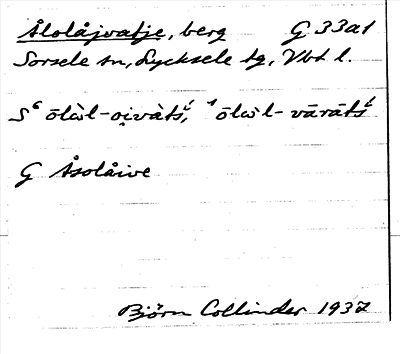 Ålolåjvatje, berg G 33a1
Sorsele sn, Lycksele tg, Vbt l.
S⁶ ōlὼl-oi̯vàtś, ¹ ōlὼl-vārātś
G Åsolåive
Björn Collinder 1937